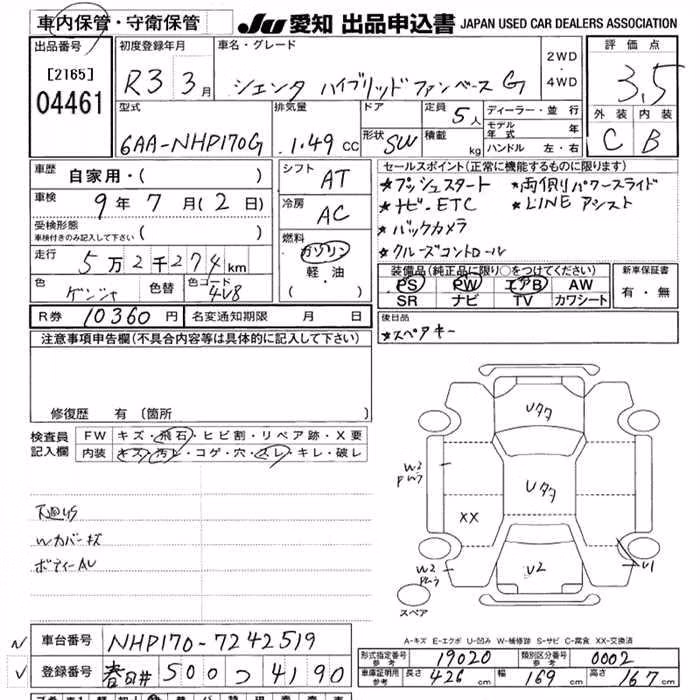 車内保管・守衛保管
JU 愛知 出品申込書 JAPAN USED CAR DEALERS ASSOCIATION
出品番号
[2165]
04461
初度登録年月
R3 3月
車名・グレード
シエンタ ハイブリッド ファンベース G
2WD
・
4WD
評価点
3.5
外装 内装
C B
型式
6AA-NHP170G
排気量
1.49 cc
ドア
形状 SW
定員 5人
積載 kg
ディーラー・並行
モデル年式 年
ハンドル 左・右
車歴
自家用・( )
車検
9年7月(2日)
受検形態
車検付きのみ記入して下さい ( )
走行
5万2千274km
色
ゲンジャ
色替
色コード
4V8
シフト
AT
冷房
AC
燃料
ガソリン
・
軽・油
( )
セールスポイント(正常に機能するものに限ります)
★プッシュスタート ★両側パワースライド
★ナビ・ETC ★LINEアシスト
★バックカメラ
★クルーズコントロール
装備品(純正品に限り○をつけてください)
PS PW エアB AW
SR ナビ TV カワシート
新車保証書
有・無
R券 10360円 名変通知期限 月 日
後日品
★スペアキー
注意事項申告欄(不具合内容等は具体的に記入して下さい)
修復歴 有 (箇所
検査員
記入欄
FW キズ・飛石・ヒビ割・リペア跡・X要
内装 キズ・汚レ・コゲ・穴・スレ・キレ・破レ
下廻りS
Wカバーキズ
ボディーAU
Uタタ
W3
Uタタ
XX
W2
U2
U1
スペア
A-キズ E-エクボ U-凹み W-補修跡 S-サビ C-腐食 XX-交換済
車台番号 NHP170-7242519
登録番号 春日井 500 つ 4190
形式指定番号
参考
19020
類別区分番号
参考
0002
車庫証明用
参考
長さ 426 幅 169 高さ 167